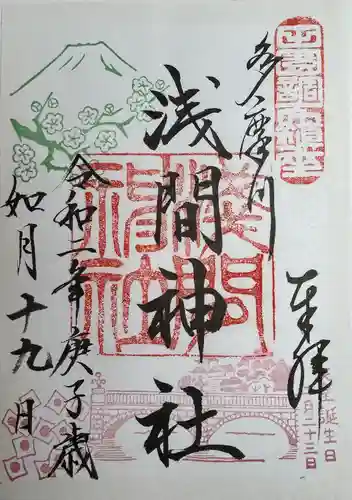 奉拝
多摩川
浅間神社
令和二年庚子歳
如月十九日
浅間神社
誕生日
月二十三日